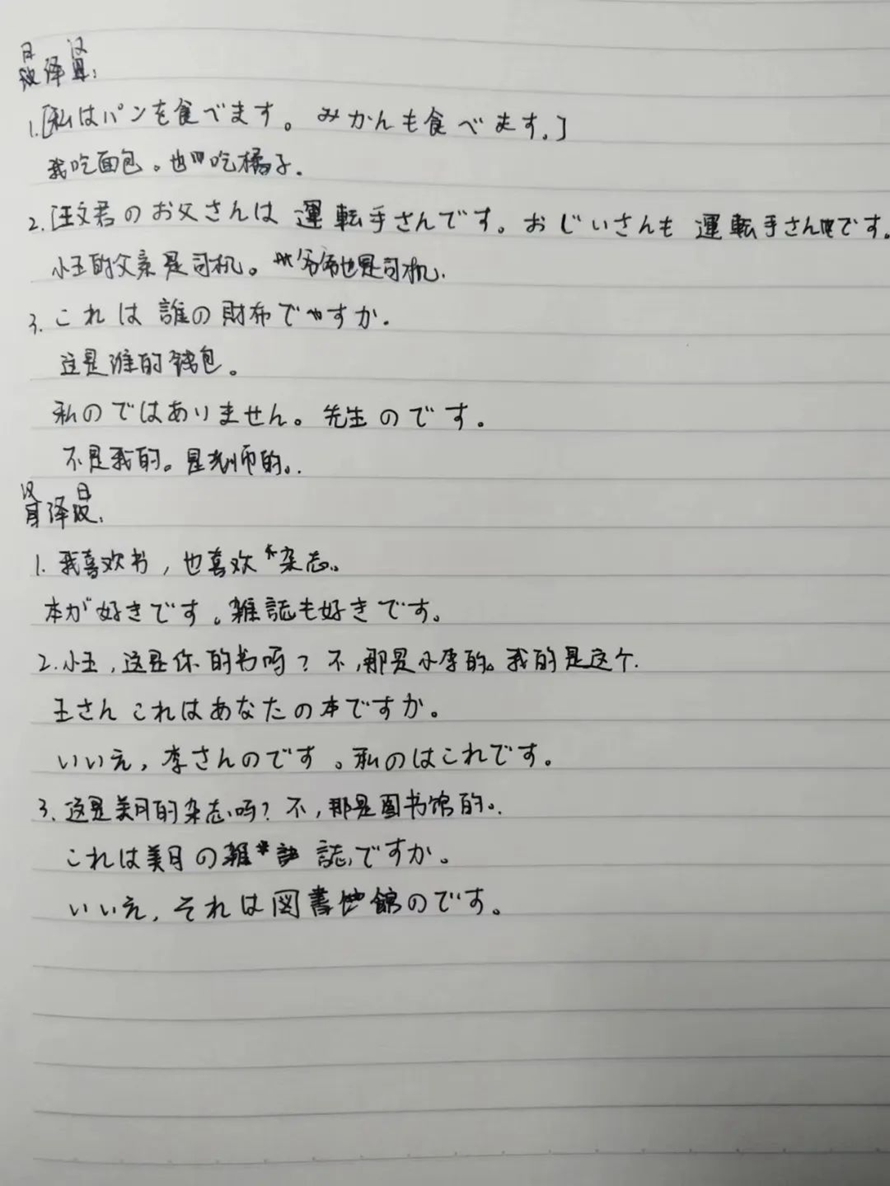 日译汉:
1.[私はパンを食べます。みかんも食べます。]
我吃面包。也吃橘子.
2.[汪文君のお父さんは運転手さんです。おじいさんも運転手さんです。
小王的父亲是司机。爷爷也是司机.
3.これは誰の財布ですか.
这是谁的钱包。
私のではありません。先生のです。
不是我的。是老师的。
汉译日:
1.我喜欢书,也喜欢杂志。
本が好きです。雑誌も好きです。
2.小王,这是你的书吗?不,那是小李的。我的是这个.
王さんこれはあなたの本ですか。
いいえ,李さんのです。私のはこれです。
3.这是美月的杂志吗?不,那是图书馆的。
これは美月の雑誌ですか。
いいえ,それは図書館のです。